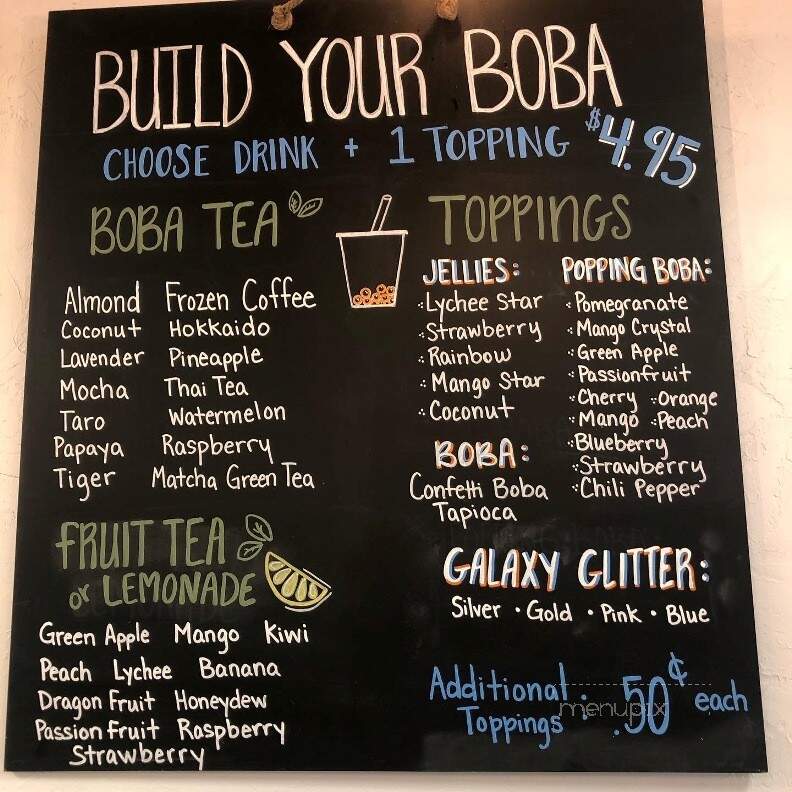 BUILD YOUR BOBA
CHOOSE DRINK + 1 TOPPING $4.95
BOBA TEA
Almond Frozen Coffee
Coconut Hokkaido
Lavender Pineapple
Mocha Thai Tea
Taro Watermelon
Papaya Raspberry
Tiger Matcha Green Tea
FRUIT TEA
or LEMONADE
Green Apple Mango Kiwi
Peach Lychee Banana
Dragon Fruit Honeydew
Passion Fruit Raspberry
Strawberry
TOPPINGS
JELLIES:
Lychee Star
Strawberry
Rainbow
Mango Star
Coconut
BOBA:
Confetti Boba
Tapioca
POPPING BOBA:
Pomegranate
Mango Crystal
Green Apple
Passionfruit
Cherry Orange
Mango Peach
Blueberry
Strawberry
Chili Pepper
GALAXY GLITTER:
Silver · Gold · Pink · Blue
Additional
Toppings : .50¢ each
menupix